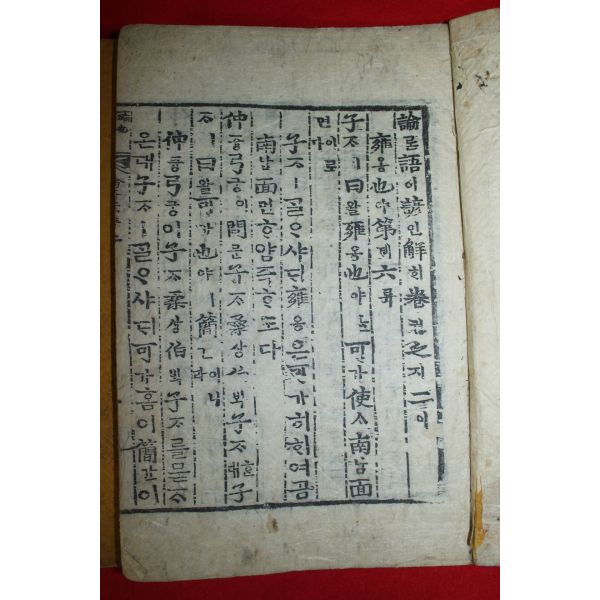 論론語어諺언解ᄒᆡ卷권之지二이
雍옹也야第뎨六륙
子ᄌᆞㅣ曰왈雍옹也야ᄂᆞᆫ可가使ᄉᆞ南남面
면이로다
子ᄌᆞㅣᄀᆞᆯᄋᆞ샤ᄃᆡ雍옹은可가히ᄒᆞ여곰
南남面면ᄒᆞ얌즉ᄒᆞ도다
仲듕弓궁이問문子ᄌᆞ桑상伯ᄇᆡᆨ子ᄌᆞᄒᆞᆫ대子
ᄌᆞㅣ曰왈可가也야ㅣ簡간이니라
仲듕弓궁이子ᄌᆞ桑상伯ᄇᆡᆨ子ᄌᆞ를묻ᄌᆞ
온대子ᄌᆞㅣᄀᆞᆯᄋᆞ샤ᄃᆡ可가흠이簡간이